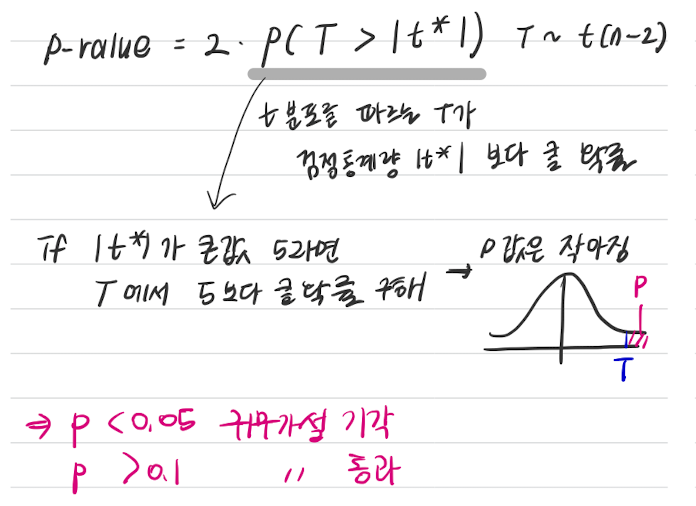 p-value = 2 · P(T > |t*|) T ~ t(n-2)
t 분포를 따르는 T가
검정통계량 |t*| 보다 클 확률
If |t*|가 큰값 5라면
T에서 5보다 클 확률 구해 → P값은 작아짐
P
T
⇒ P < 0.05 귀무가설 기각
P > 0.1 〃 통과